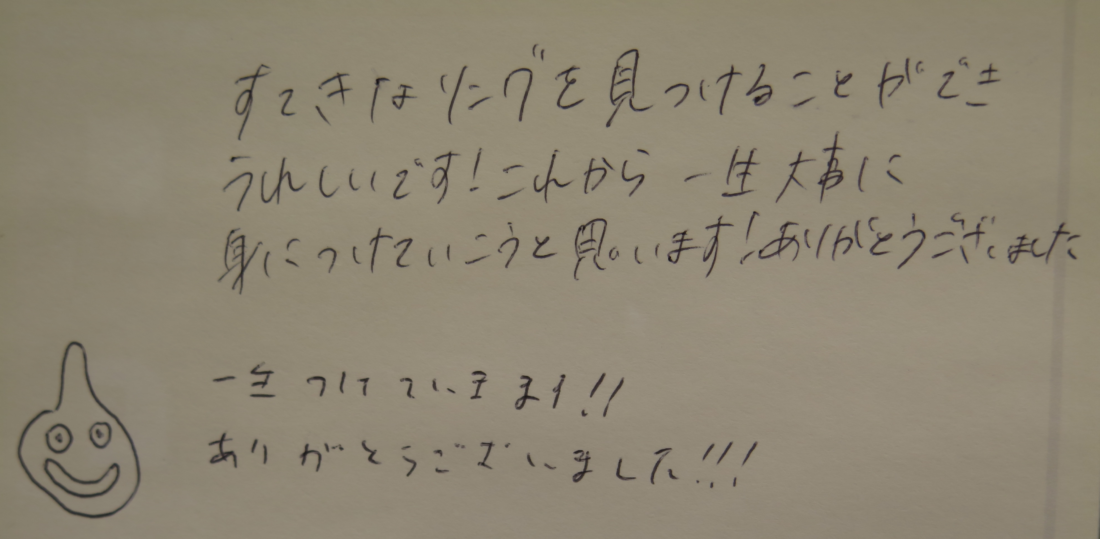 すてきなリングを見つけることができ
うれしいです!これから一生大事に
身につけていこうと思います!ありがとうございました
一生つけていきます!!
ありがとうございました!!!